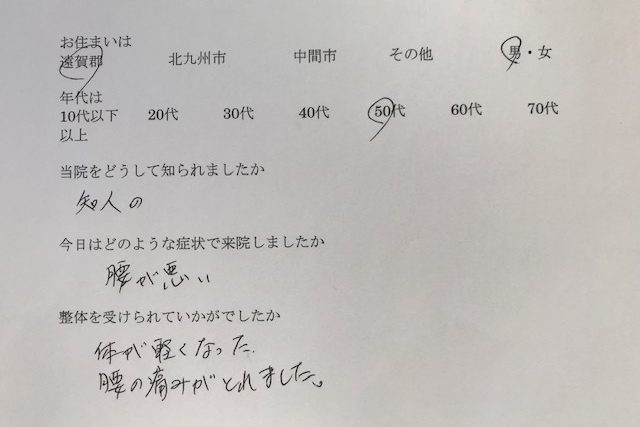 お住まいは
遠賀郡 北九州市 中間市 その他 男・女
年代は
10代以下 20代 30代 40代 50代 60代 70代
以上
当院をどうして知られましたか
知人の
今日はどのような症状で来院しましたか
腰が悪い
整体を受けられていかがでしたか
体が軽くなった.
腰の痛みがとれました。